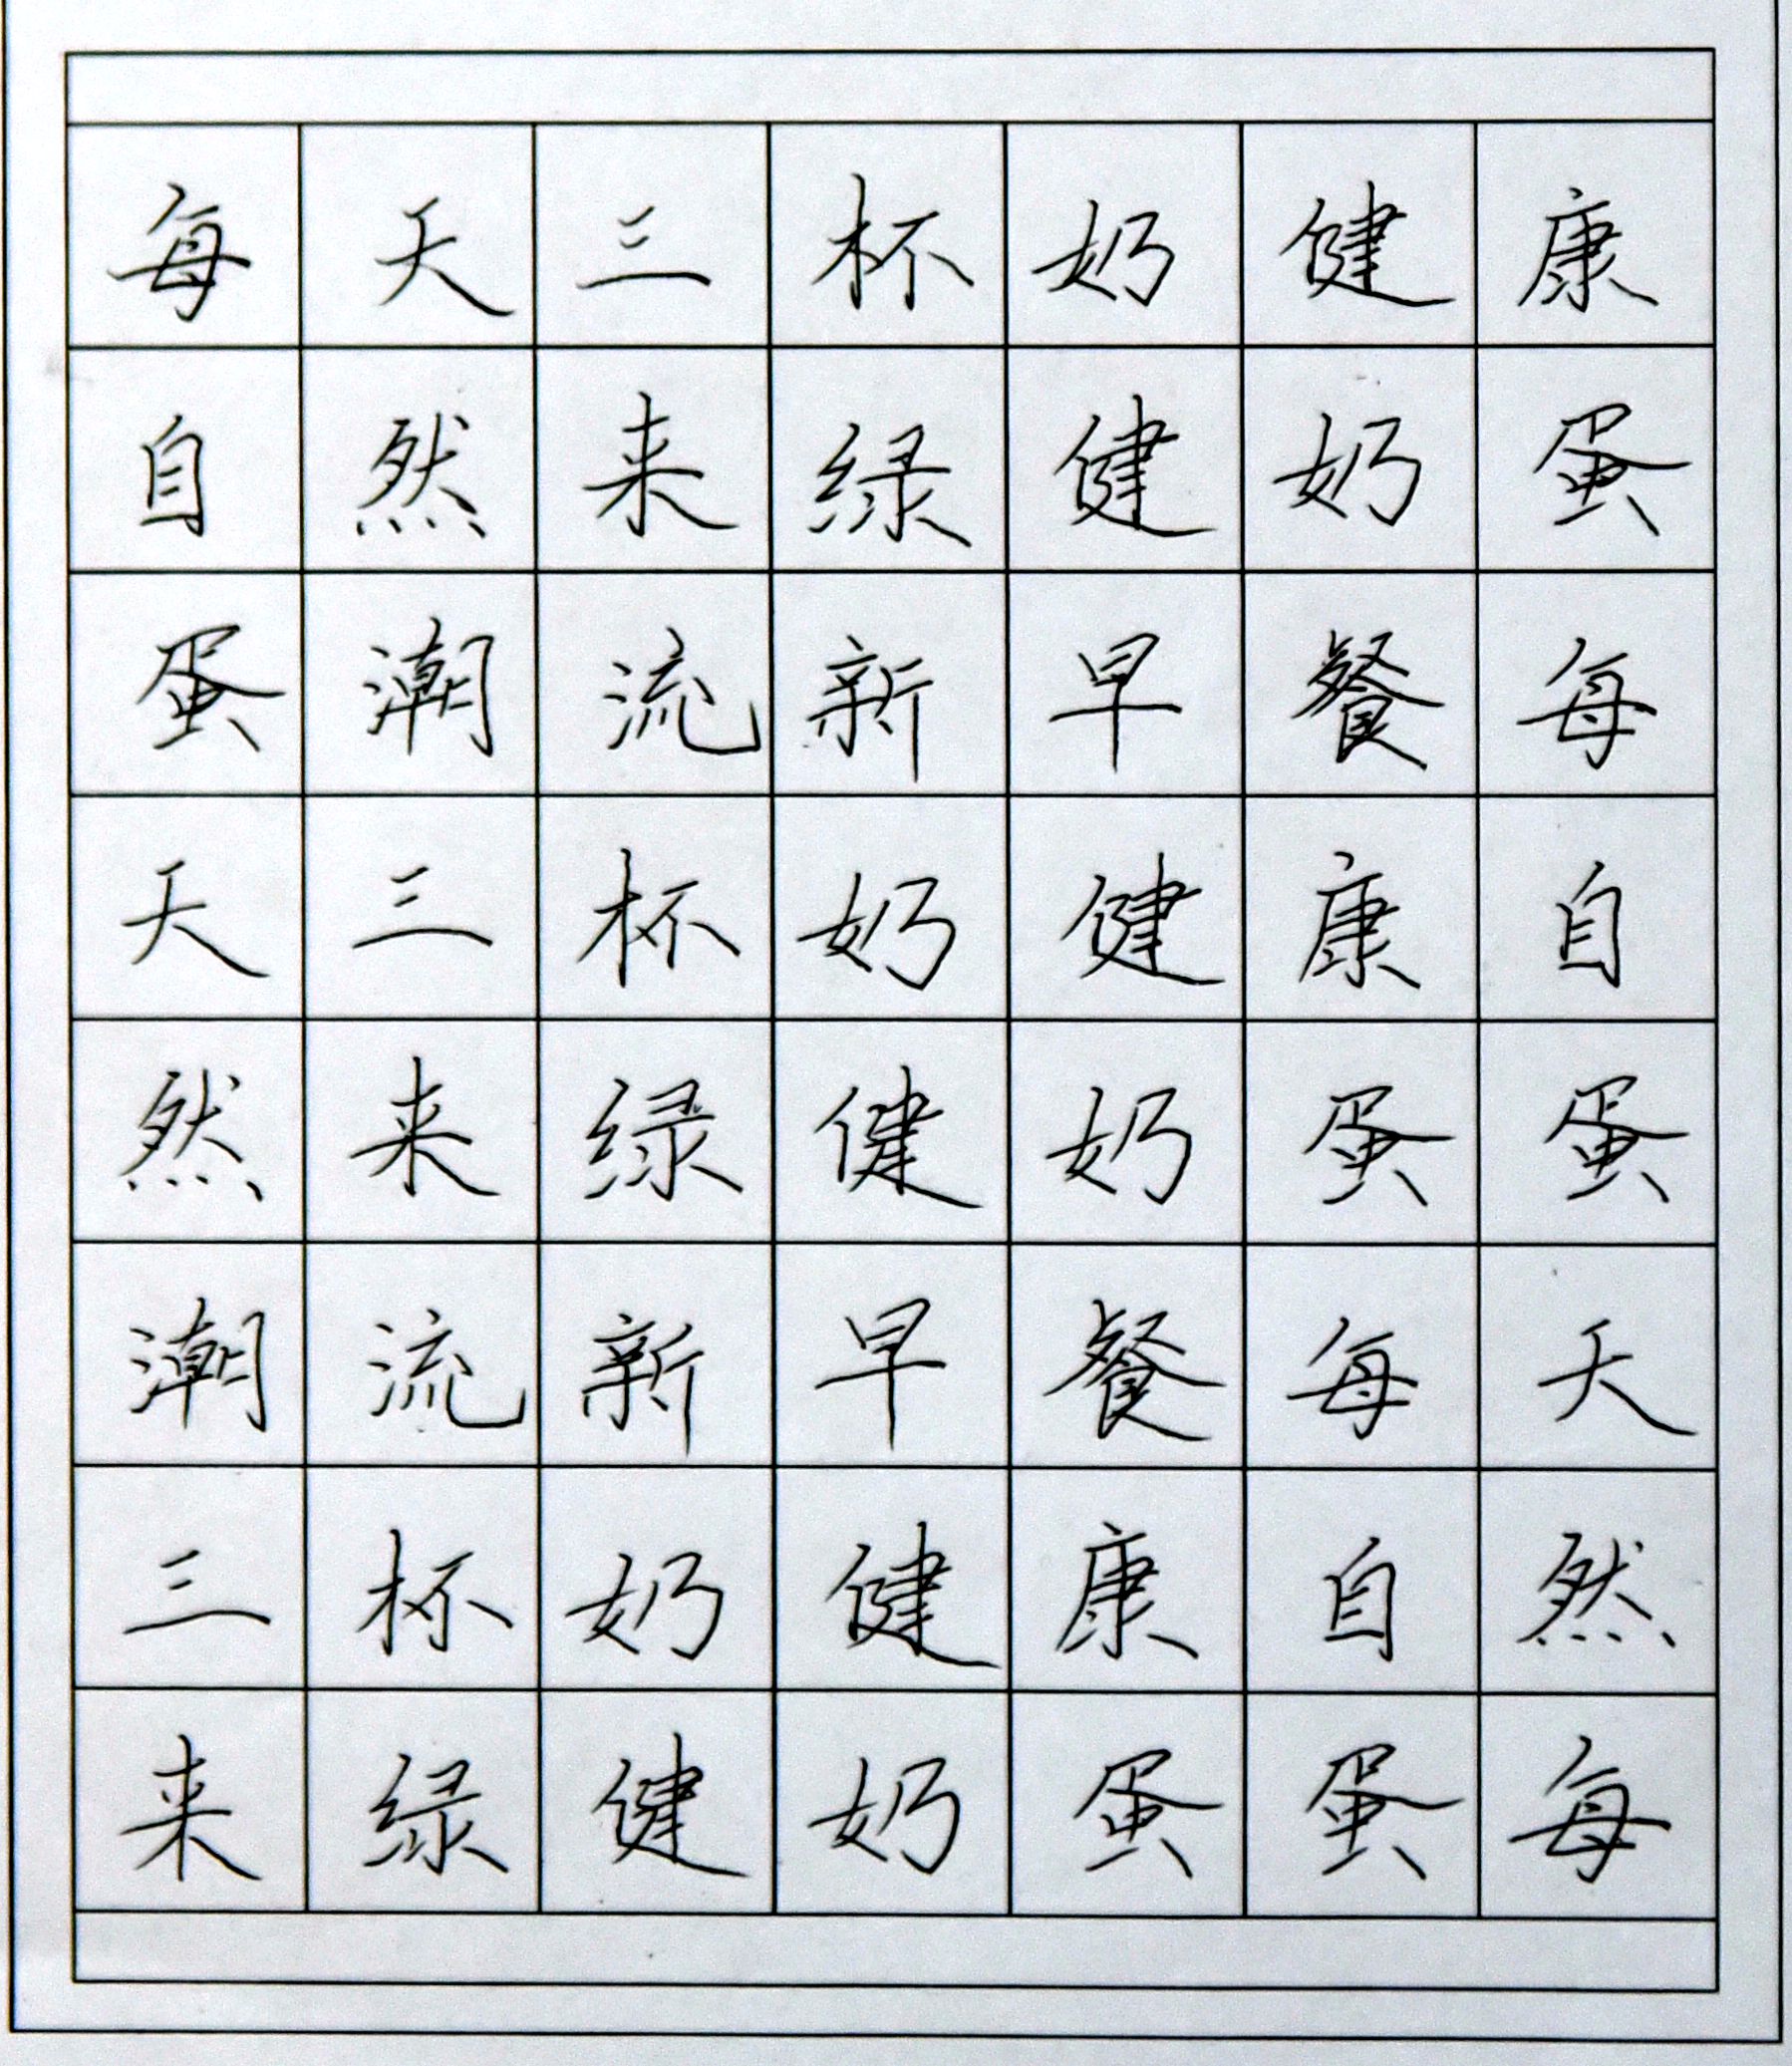 每天三杯奶健康
自然来绿健奶蛋
蛋潮流新早餐每
天三杯奶健康自
然来绿健奶蛋蛋
潮流新早餐每天
三杯奶健康自然
来绿健奶蛋蛋每